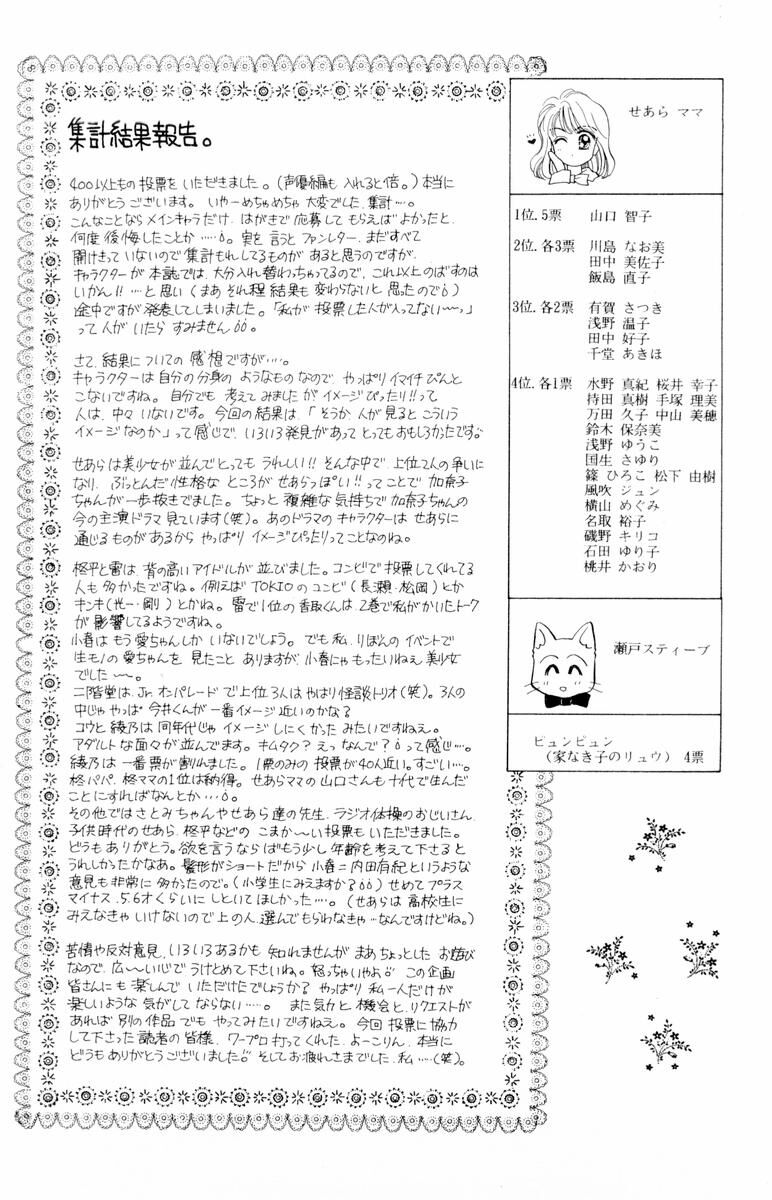 集計結果報告。
400以上もの投票をいただきました。(声優編も入れると倍。)本当に
ありがとうございます。いやーめちゃめちゃ大変でした、集計…。
こんなことならメインキャラだけ、はがきで応募してもらえばよかったと、
何度後悔したことか……。実を言うとファンレター、まだすべて
開けきっていないので集計もれしてるものがあると思うのですが、
キャラクターが本誌では、大分入れ替わっちゃってるので、これ以上のばすのは
いかん!!…と思い(まあそれ程結果も変わらないと思ったので)
途中ですが発表してしまいました。「私が投票した人が入ってない〜っ」
って人がいたらすみません。
さて、結果についての感想ですが…。
キャラクターは自分の分身のようなものなので、やっぱりイマイチぴんと
こないですね。自分でも考えてみましたがイメージぴったり!!って
人は、中々いないです。今回の結果は、「そうか人が見るとこういう
イメージなのか」って感じで、いろいろ発見があってとってもおもしろかったです。
せあらは美少女が並んでとってもうれしい!!そんな中で、上位2人の争いに
なり、ぶっとんだ性格なところがせあらっぽい!!ってことで加奈子
ちゃんが一歩抜きでました。ちょっと複雑な気持ちで加奈子ちゃんの
今の主演ドラマ見ています(笑)。あのドラマのキャラクターはせあらに
通じるものがあるからやっぱりイメージぴったりってことなのね。
柊平と雷は背の高いアイドルが並びました。コンビで投票してくれてる
人も多かったですね。例えばTOKIOのコンビ(長瀬・松岡)とか
キンキ(光一・剛)とかね。雷で1位の香取くんは、2巻で私がかいたトーク
が影響してるようですね。
小春はもう愛ちゃんしかいないでしょう。でも私、りぼんのイベントで
生モノの愛ちゃんを見たことありますが、小春にゃもったいねえ美少女
でした〜。
二階堂は、Jr.オンパレードで上位3人はやはり怪談トリオ(笑)。3人の
中じゃやっぱ今井くんが一番イメージ近いのかな?
コウと綾乃は同年代じゃイメージしにくかったみたいですねえ。
アダルトな面々が並んでます。キムタク?えっなんで?って感じ…。
綾乃は一番票が割れました。1票のみの投票が40人近い。すごい…。
柊パパ、柊ママの1位は納得。せあらママの山口さんも十代で生んだ
ことにすればなんとか…。
その他ではさとみちゃんやせあら達の先生、ラジオ体操のおじいさん、
子供時代のせあら、柊平などのこまか〜い投票もいただきました。
どうもありがとう。欲を言うならばもう少し年齢を考えて下さると
うれしかったかなあ。髪形がショートだから小春=内田有紀というような
意見も非常に多かったので。(小学生にみえますか?)せめてプラス
マイナス5.6才くらいにしといてほしかった…。(せあらは高校生に
みえなきゃいけないので上の人、選んでもらわなきゃ…なんですけどね。)
苦情や反対意見、いろいろあるかも知れませんがまあちょっとしたお遊び
なので、広〜い心でうけとめて下さいね。怒っちゃいやよ この企画
皆さんにも楽しんでいただけたでしょうか?やっぱり私一人だけが
楽しいような気がしてならない…。また気力と機会と、リクエストが
あれば別の作品でもやってみたいですねえ。今回投票に協力
して下さった読者の皆様、ワープロ打ってくれた、よーこりん、本当に
どうもありがとうございました そしてお疲れさまでした、私…(笑)。
せあら ママ
1位.5票 山口 智子
2位.各3票 川島 なお美
田中 美佐子
飯島 直子
3位.各2票 有賀 さつき
浅野 温子
田中 好子
千堂 あきほ
4位.各1票 水野 真紀 桜井 幸子
持田 真樹 手塚 理美
万田 久子 中山 美穂
鈴木 保奈美
浅野 ゆうこ
国生 さゆり
篠 ひろこ 松下 由樹
風吹 ジュン
横山 めぐみ
名取 裕子
磯野 キリコ
石田 ゆり子
桃井 かおり
瀬戸スティーブ
ピュンピュン
(家なき子のリュウ) 4票